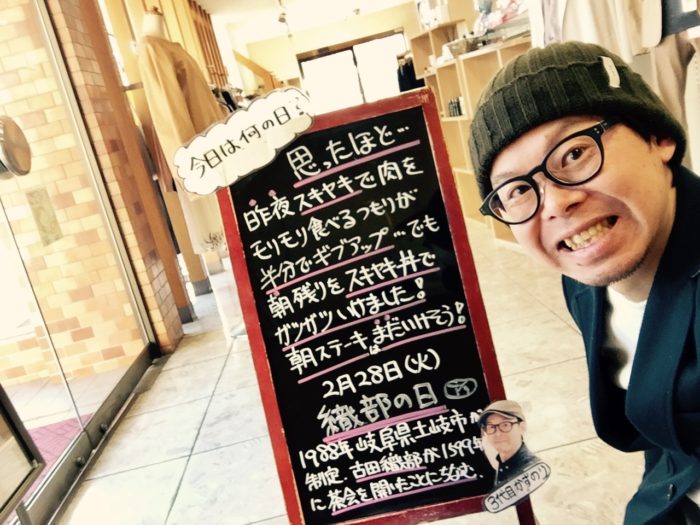 今日は何の日?
思ったほど…
昨夜スキヤキで肉を
モリモリ食べるつもりが
半分でギブアップ…でも
朝残りをスキヤキ丼で
ガツガツいけました!
朝ステーキはまだいけそう!
2月28日(火)
織部の日
1988年岐阜県土岐市が
制定.古田織部が1599年
に茶会を開いたことにちなむ.
3代目かずのり